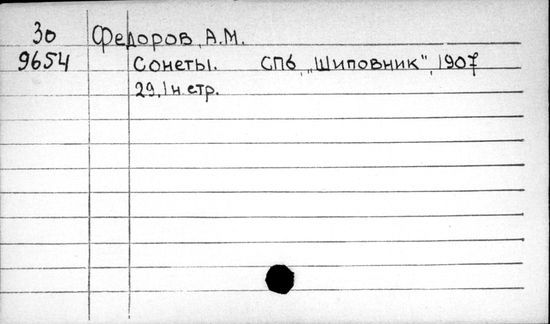 30 Федоров, А.М.
9654 Сонеты. СПб, „Шиповник", 1907
29, 1 н стр.